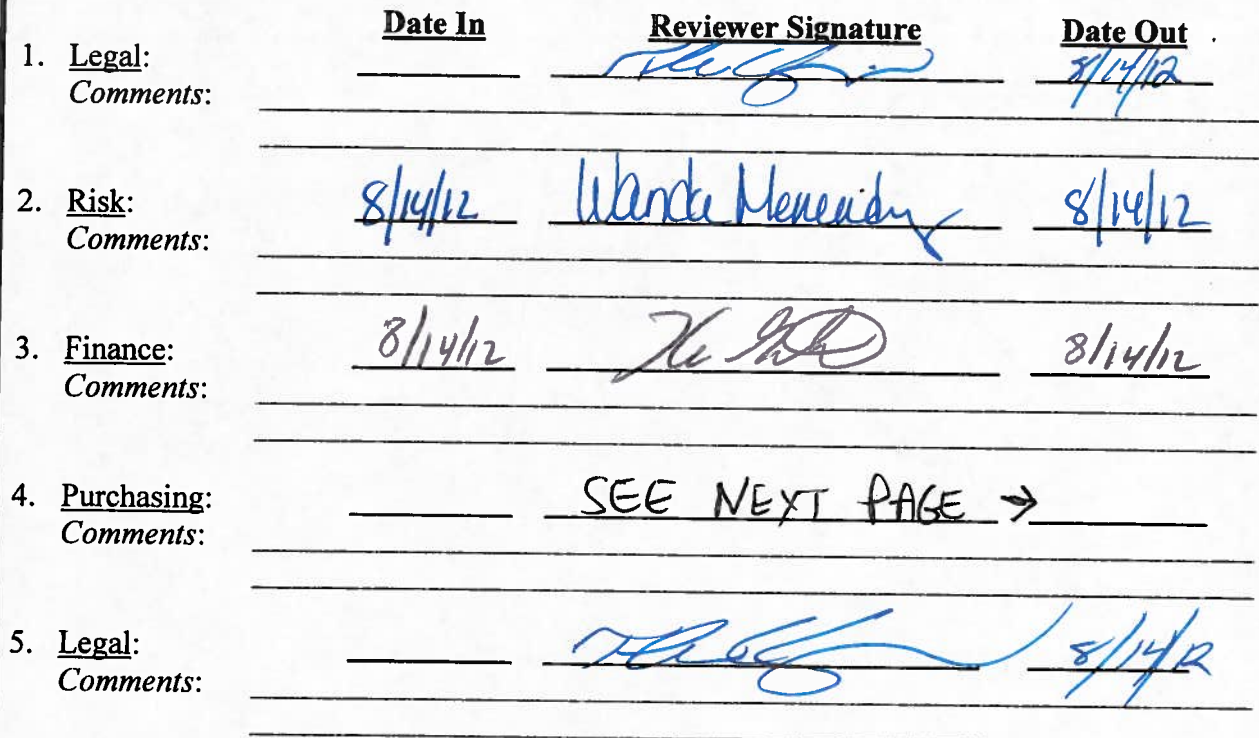 Date In Reviewer Signature Date Out
1. Legal: 8/14/12
Comments:
2. Risk: 8/14/12 Wanda 8/14/12
Comments:
3. Finance: 8/14/12 8/14/12
Comments:
4. Purchasing: SEE NEXT PAGE →
Comments:
5. Legal: 8/14/12
Comments: